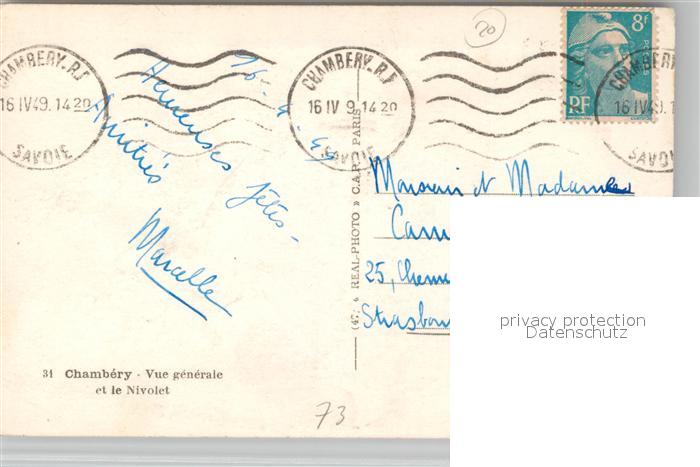 20
8f
POSTES
RF
CHAMBERY. R.P
16 IV 49. 14 20
SAVOIE
CHAMBERY. R.P
16 IV 9. 14 20
SAVOIE
CHAMBERY
16 IV 49. 1
SAVOIE
16-4-49
Heureuses fêtes -
Amitiés
Marcelle
(47) « REAL-PHOTO » C.A.P. PARIS
Monsieur et Madame
Cam
25, Chemi
Strasbou
privacy protection
Datenschutz
31 Chambéry - Vue générale
et le Nivolet
73